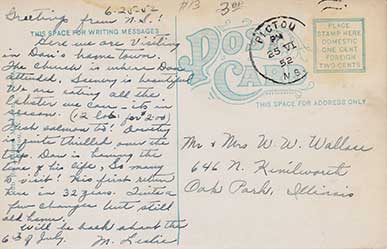 6-25-52
Greetings from N.S.!
THIS SPACE FOR WRITING MESSAGES
Here we are visiting
in Dan's home town.
The church is where Dan
attended. Scenery is beautiful
We are eating all the
lobster we can - its in
season. (12 lbs. for 2.00)
Fresh salmon too! Dorothy
is quite thrilled over the
trip. Dan is having the
time of his life, so many
to visit! His first return
here in 32 years. Finds a
few changes but still
old home.
Will be back about the
6th of July.
M. Leslie
POST
CARD
THIS SPACE FOR ADDRESS ONLY
PICTOU
PM
25 VI
52
N.S.
PLACE
STAMP HERE
DOMESTIC
ONE CENT
FOREIGN
TWO CENTS
Mr & Mrs W. W. Wallace
646 N. Kenilworth
Oak Park, Illinois